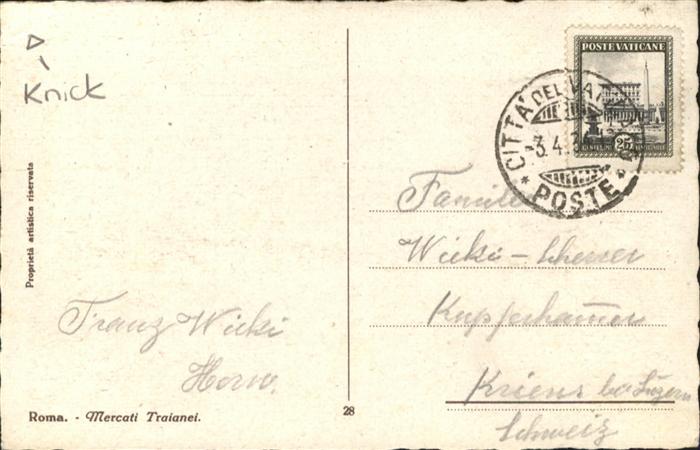 Knick
Proprietà artistica riservata
Franz Wicki
Horw.
Roma. - Mercati Traianei.
28
POSTE VATICANE
25
CITTÀ DEL VATICANO
-3.4.3
POSTE
Familie
Wicki-Scherer
Kupferhammer
Kriens bei Luzern
Schweiz